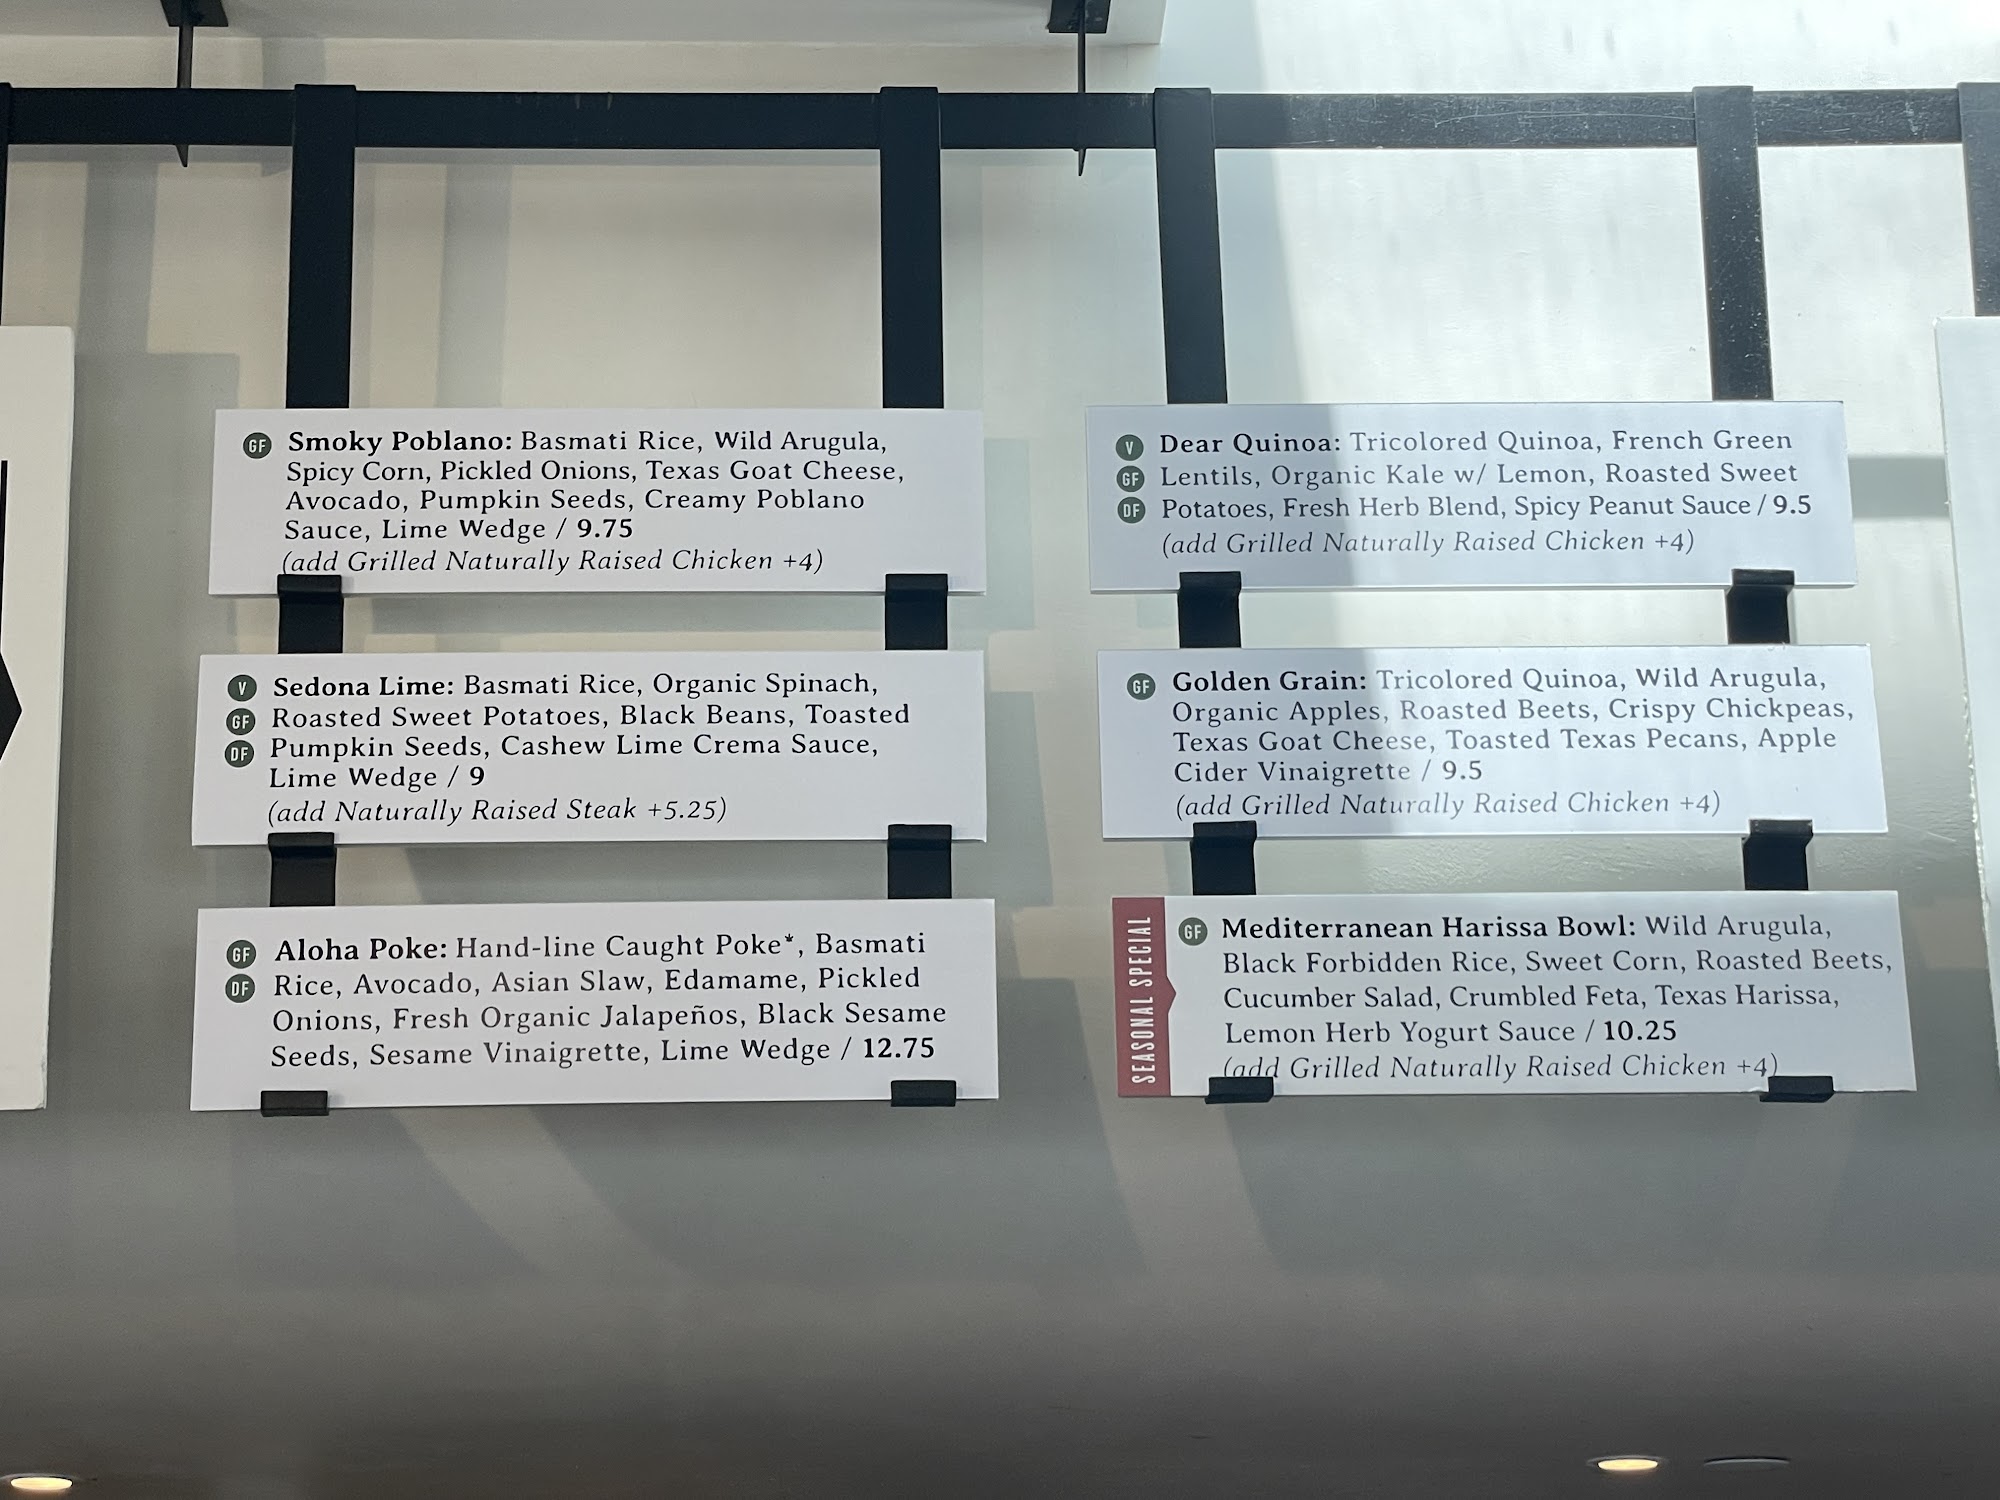 GF Smoky Poblano: Basmati Rice, Wild Arugula,
Spicy Corn, Pickled Onions, Texas Goat Cheese,
Avocado, Pumpkin Seeds, Creamy Poblano
Sauce, Lime Wedge / 9.75
(add Grilled Naturally Raised Chicken +4)
V Sedona Lime: Basmati Rice, Organic Spinach,
GF Roasted Sweet Potatoes, Black Beans, Toasted
DF Pumpkin Seeds, Cashew Lime Crema Sauce,
Lime Wedge / 9
(add Naturally Raised Steak +5.25)
GF Aloha Poke: Hand-line Caught Poke*, Basmati
DF Rice, Avocado, Asian Slaw, Edamame, Pickled
Onions, Fresh Organic Jalapeños, Black Sesame
Seeds, Sesame Vinaigrette, Lime Wedge / 12.75
V Dear Quinoa: Tricolored Quinoa, French Green
GF Lentils, Organic Kale w/ Lemon, Roasted Sweet
DF Potatoes, Fresh Herb Blend, Spicy Peanut Sauce / 9.5
(add Grilled Naturally Raised Chicken +4)
GF Golden Grain: Tricolored Quinoa, Wild Arugula,
Organic Apples, Roasted Beets, Crispy Chickpeas,
Texas Goat Cheese, Toasted Texas Pecans, Apple
Cider Vinaigrette / 9.5
(add Grilled Naturally Raised Chicken +4)
SEASONAL SPECIAL
GF Mediterranean Harissa Bowl: Wild Arugula,
Black Forbidden Rice, Sweet Corn, Roasted Beets,
Cucumber Salad, Crumbled Feta, Texas Harissa,
Lemon Herb Yogurt Sauce / 10.25
(add Grilled Naturally Raised Chicken +4)